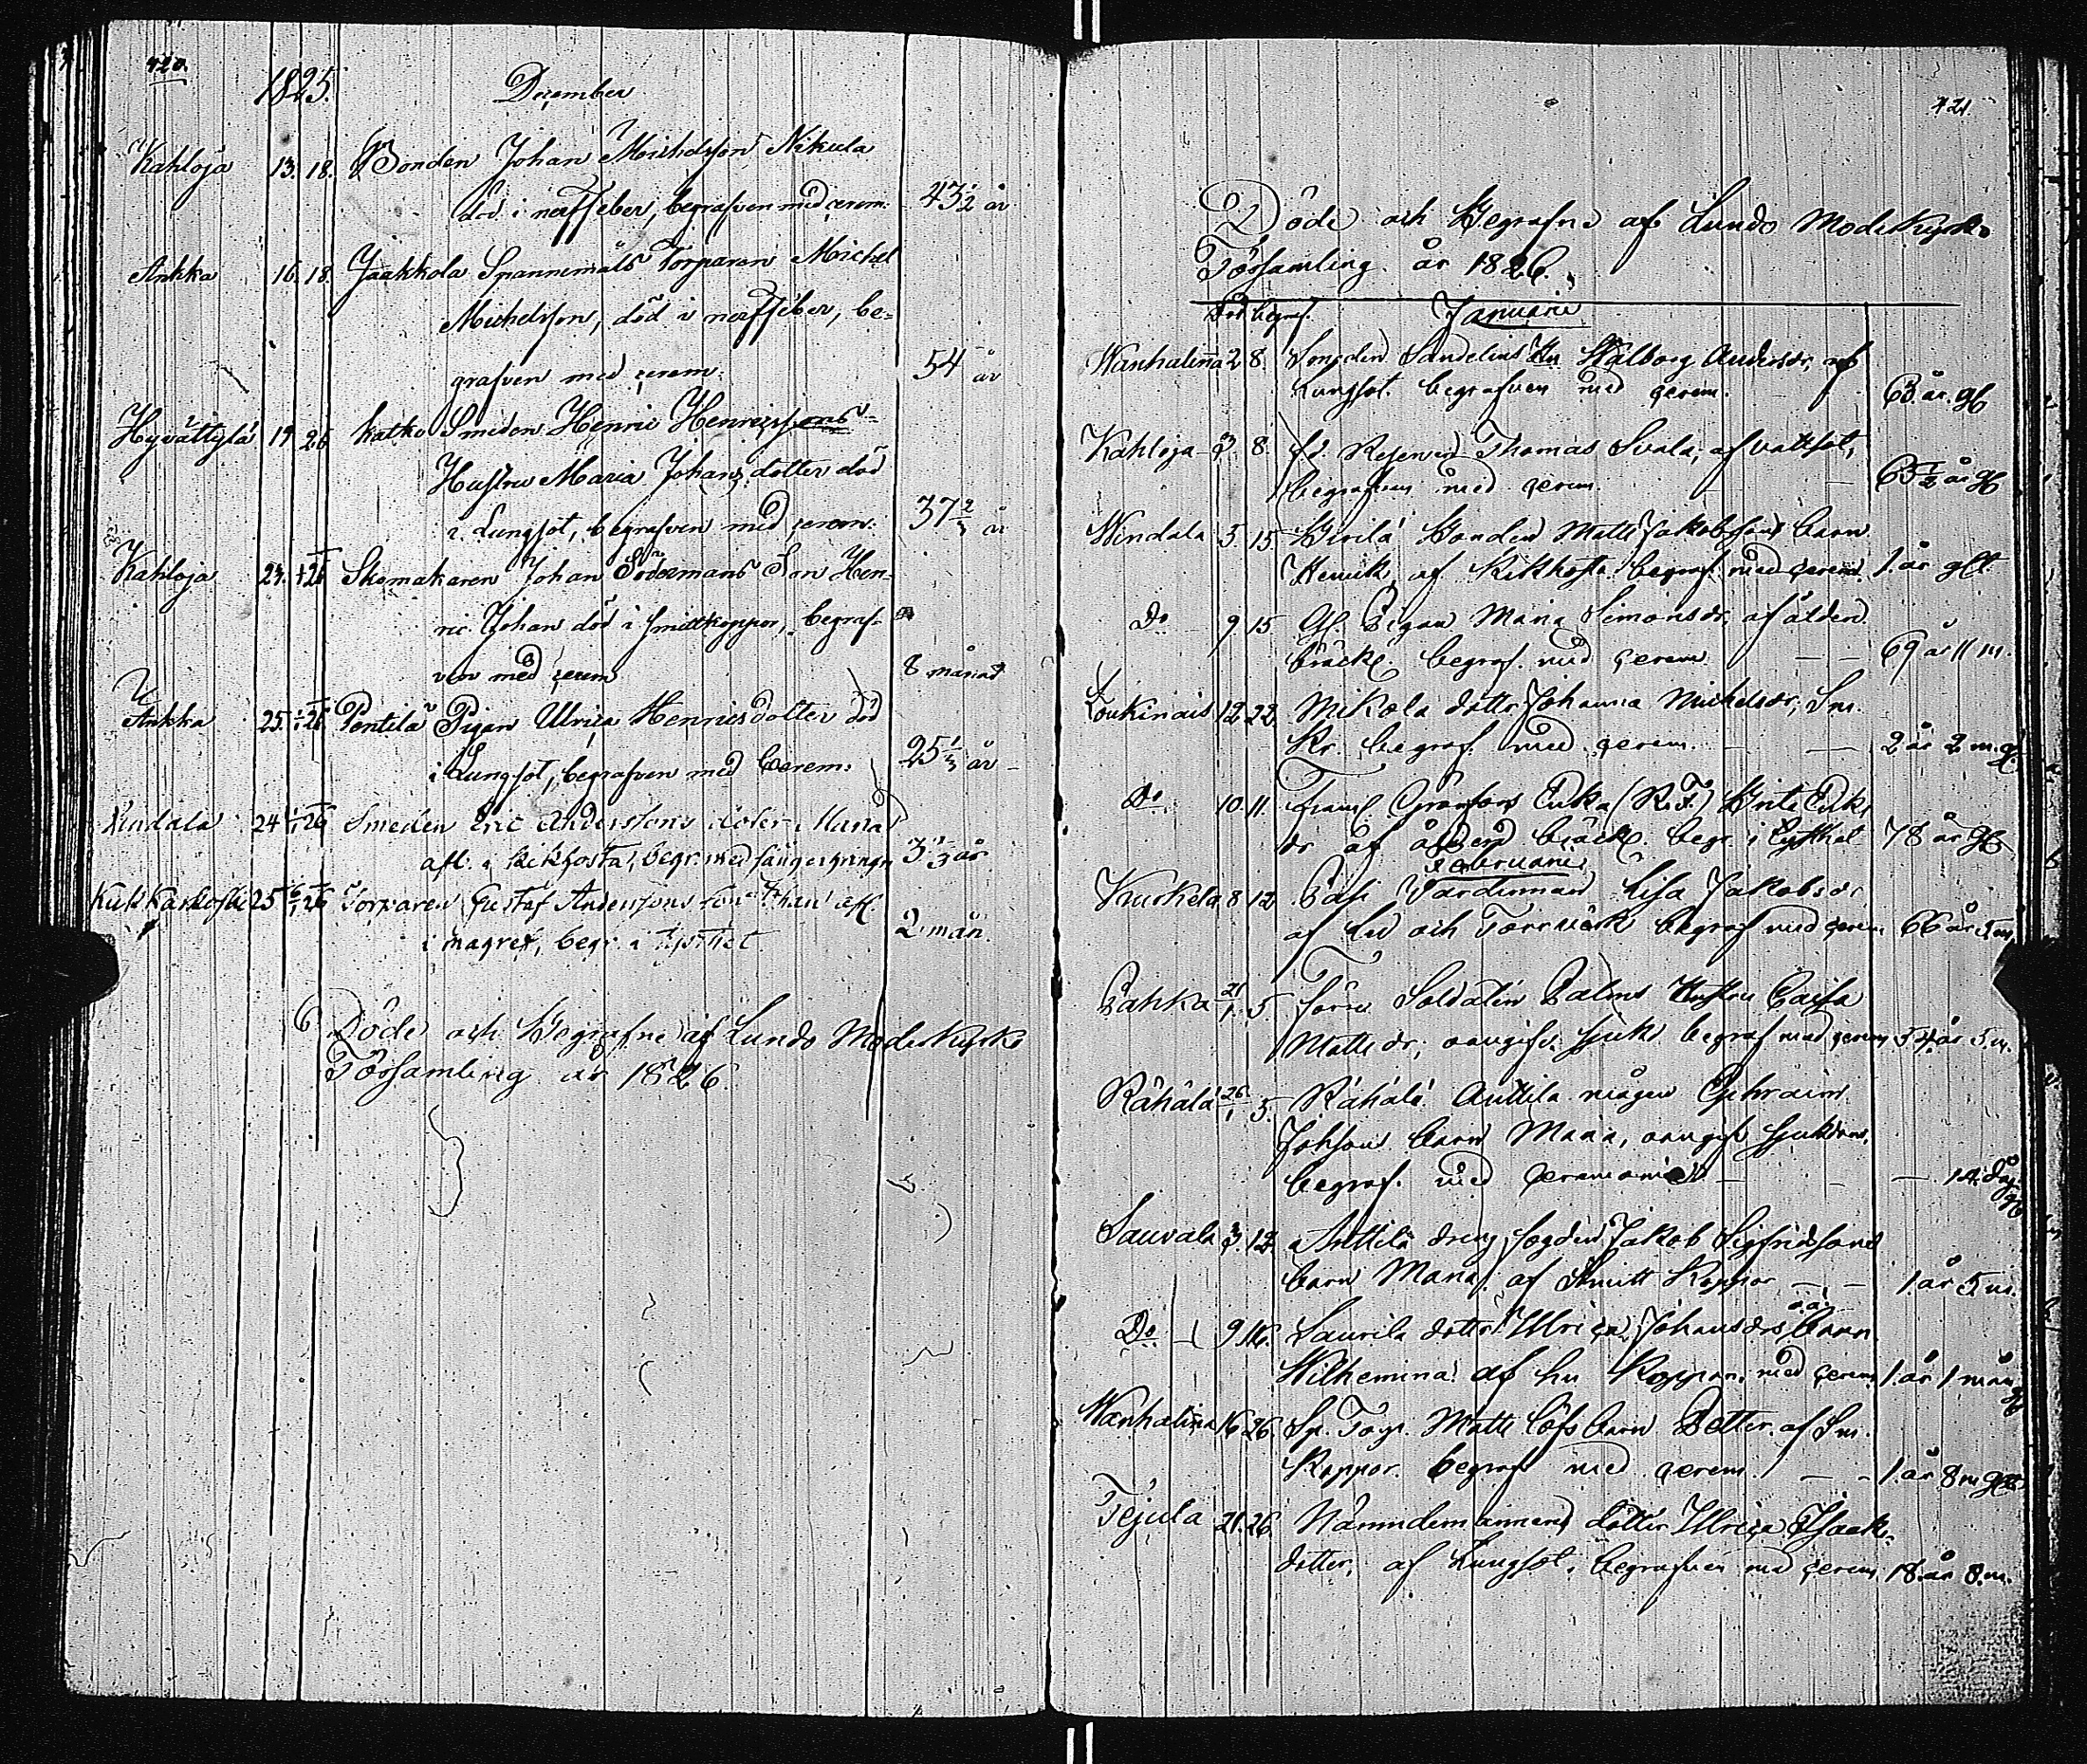 420.
1825. December
Kahloja 13. 18. Bonden Johan Michelsson Nikula
död i nerffeber, begrafven med cerem. 43½ år
Ankka 16. 18. Jaakkola Spannemåls Torparen Michel
Michelsson, död i nerffeber, be=
grafven med cerem. 54 år
Hyvättylä 19 26 Katko Smeden Henric Henricssons
Hustru Maria Johansdotter död
i Lungsot, begrafven med cerem. 37 år
Kahloja 24. 26 Skomakaren Johan Södermans Son Hen-
ric Johan död i smittkoppor, begraf-
ven med cerem 8 månad
Ankka 25. 26 Pentilä Pigan Ulrica Henricsdotter död
i Lungsot, begrafven med Cerem: 25⅓ år
24 26 Smeden Eric Anderssons doter Maria
afl. i kikhosta, begr. med 3⅓ år
25 6/1 26 Torparen Gustaf Anderssons son Johan afl.
i magref, begr. i tysthet 2 mån.
Döde och Begrafne af Lundo Moderkyrko
Församling år 1826.
421
Döde och Begrafne af Lundo Moderkyrko
Församling år 1826.
Död begraf. Januarii
Wanhalinna 2 8. Sandelius Hu Walborg Andersdr, af
Lungsot. begrafven med cerem. 63 år. gt
Kahloja 3. 8. fd. Thomas Svala, af vattsot,
begrafven med cerem. 65½ år gt
Windala 5. 15. Bonden Matts Jakobssons barn
Henrik, af Kikhosta begraf. med cerem. 1. år gt
Do 9. 15. Pigan Maria Simonsdr, af ålder
bräckl. begraf. med cerem. 69 år 11 m.
Loukinais 12. 22. Mikola dotter Johanna Michelsdr, Sm.
Kr. begraf. med cerem. 2 år 2 m.
Do 10. 11. Enka (R.F.) Brita Eriks
dr af ålderd bräckl. begr. i tysthet 78 år
Februarii
Kurkela 8 12. Lisa Jakobsdr
af och Torrvärk begraf med cerem 66 år 5 m
Pahka 21/1. 5 Förre Soldaten Palms Hustru Caisa
Matts dr, oangifv. sjukd begraf med cerem 54. år 5. m.
Rähälä 26/1 5. Rähälä Anttila mågen Ephraim
Johssons barn Maria, oangif. sjukdom.
begraf. med ceremonier 14. dag
Sauvala 3. 12. Anttila dreng fogden Jakob Sigfridssons
barn Maria. af Smitt Koppor 1. år 5 m.
Do 9. 16. Saurila dotter Ulrica Johansdrs o.ä. barn
Wilhemina af hu Koppor. med cerem 1. år 1 mån
Wanhalinna 16 26. Sp. Torp. Matts Löfs barn Dotter. af Sm.
Koppor. begraf med cerem. 1. år 8 m
Tejula 21. 26. Nämndemannens dotter Ulrica Isaaks
dotter, af Lungsot. begrafven med cerem 18. år 8. m.